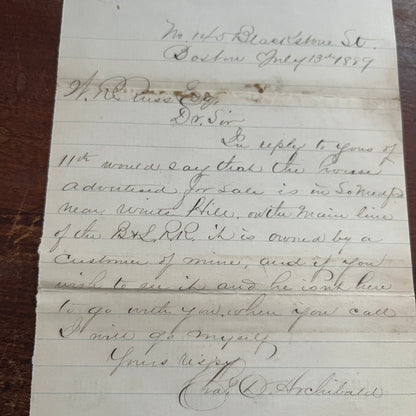 No. 140 Blackstone St.
Boston July 13th 1889
W. R. Esq.
Dr. Sir
In reply to yours of
11th would say that the house
advertised for sale is in So Medford
near Winter Hill, on the Main line
of the B & L R.R. it is owned by a
customer of mine, and if you
wish to see it and he isnt here
to go with you, when you call
I will go myself
Yours respy
Chas D. Archibald